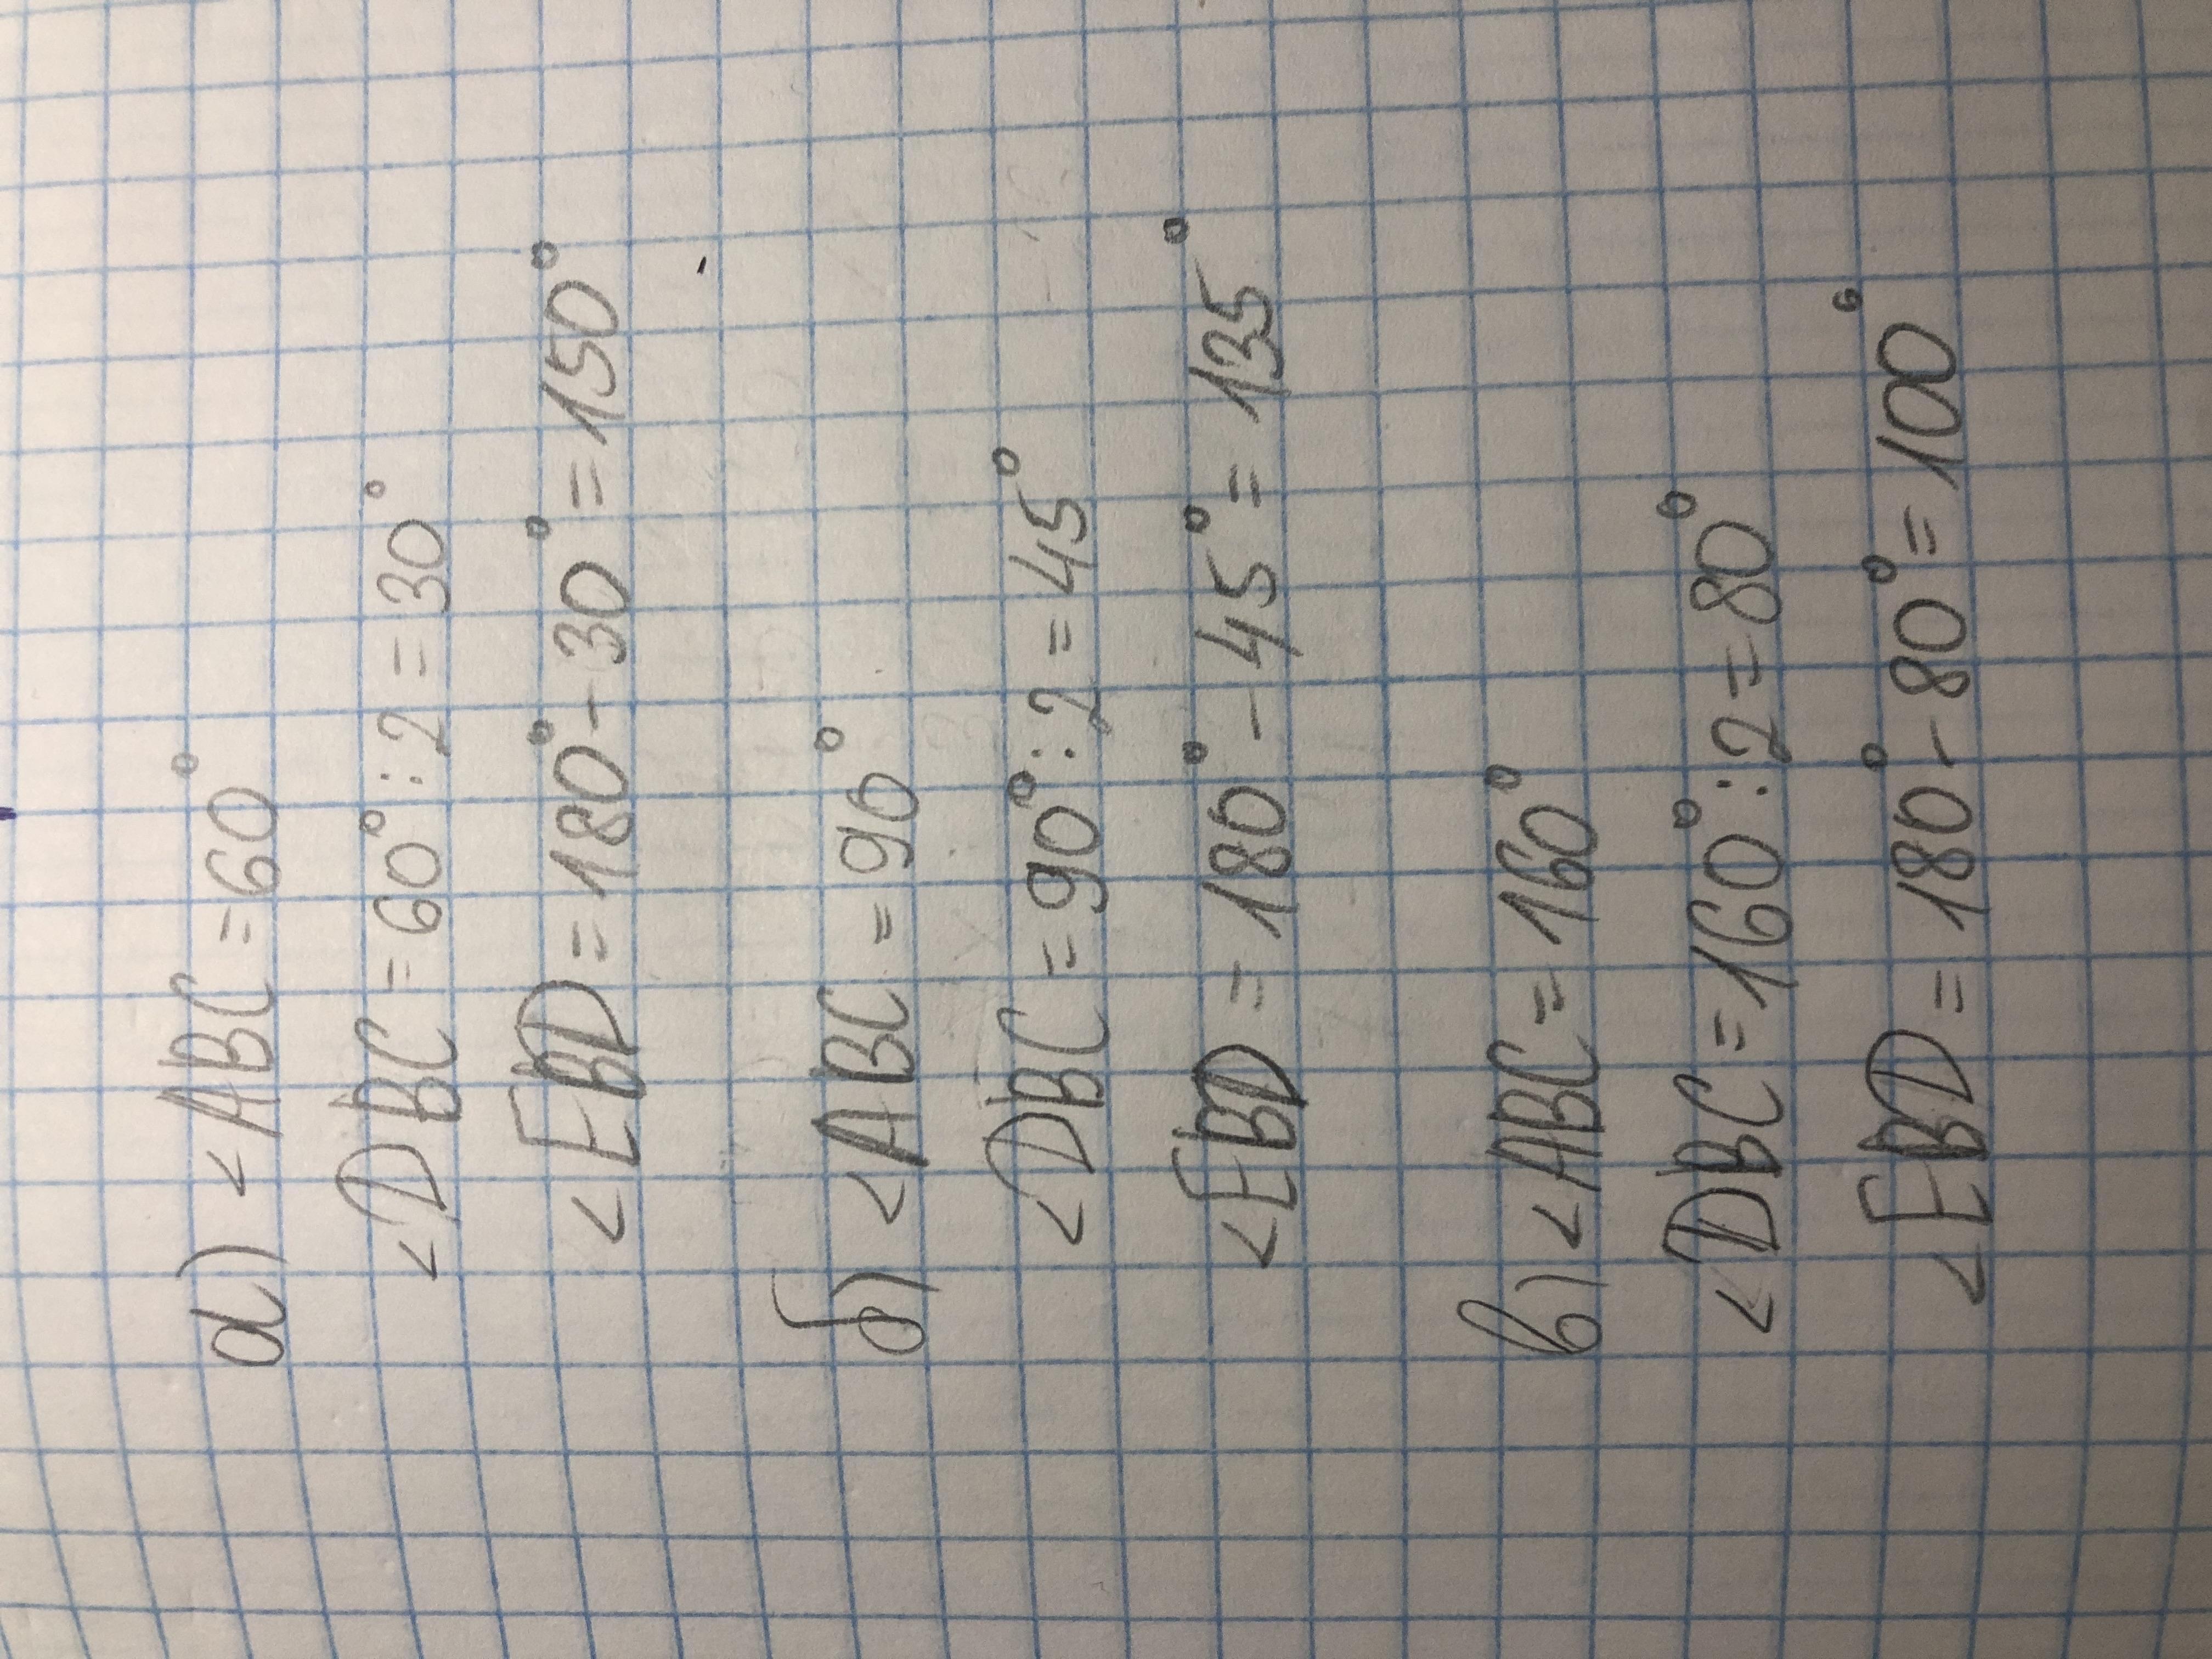 а) <ABC = 60°
<DBC = 60° : 2 = 30°
<EBD = 180° - 30° = 150°
б) <ABC = 90°
<DBC = 90° : 2 = 45°
<EBD = 180° - 45° = 135°
в) <ABC = 160°
<DBC = 160° : 2 = 80°
<EBD = 180° - 80° = 100°